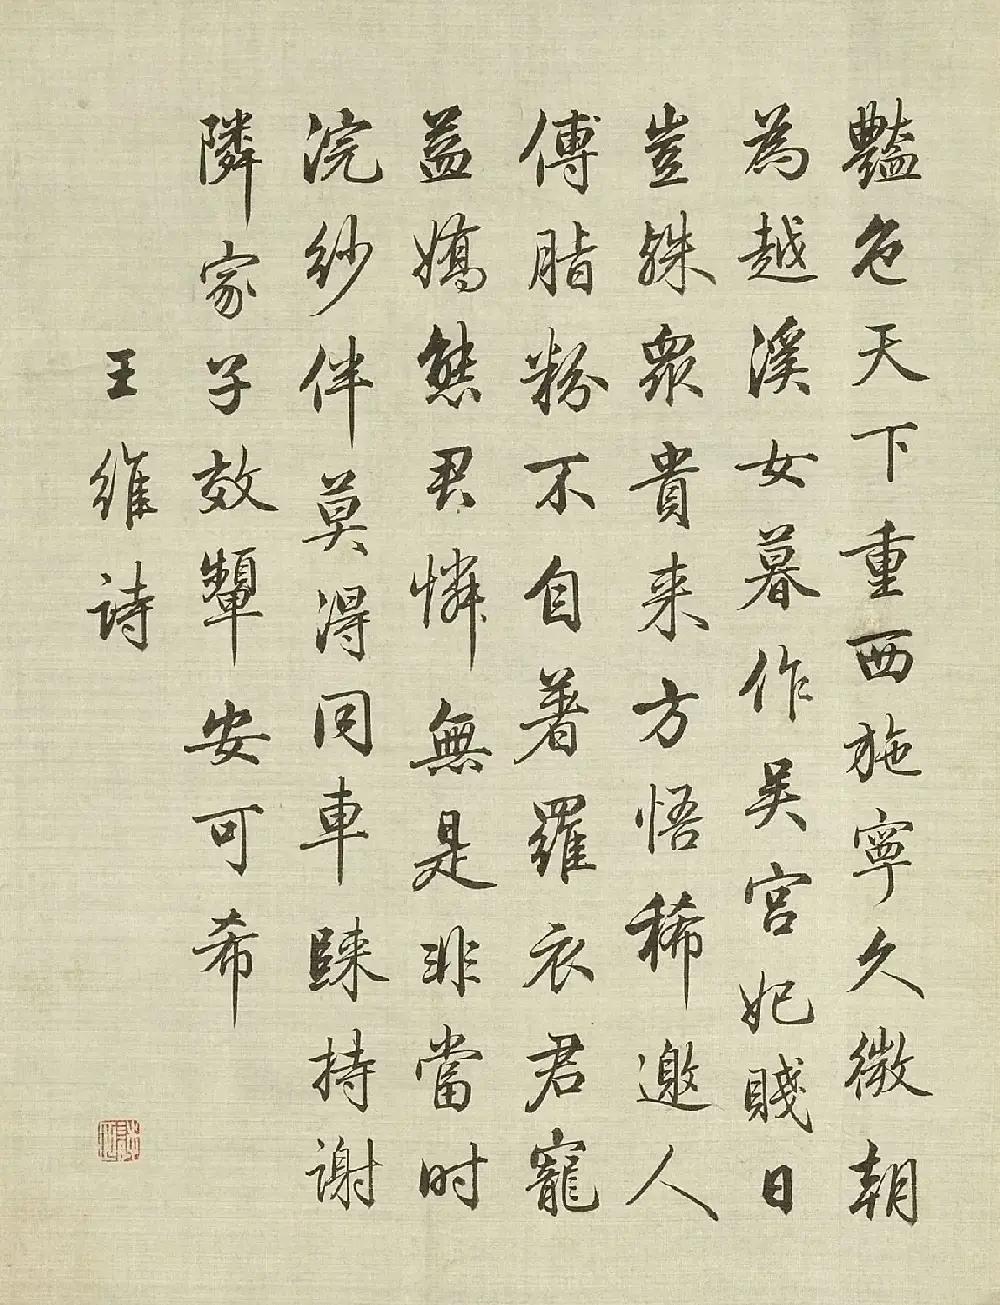 豔色天下重西施寧久微朝
為越溪女暮作吳宮妃賤日
豈殊衆貴来方悟稀邀人
傅脂粉不自著羅衣君寵
益嬌態君憐無是非當时
浣紗伴莫得同車歸持謝
隣家子效顰安可希
王維詩